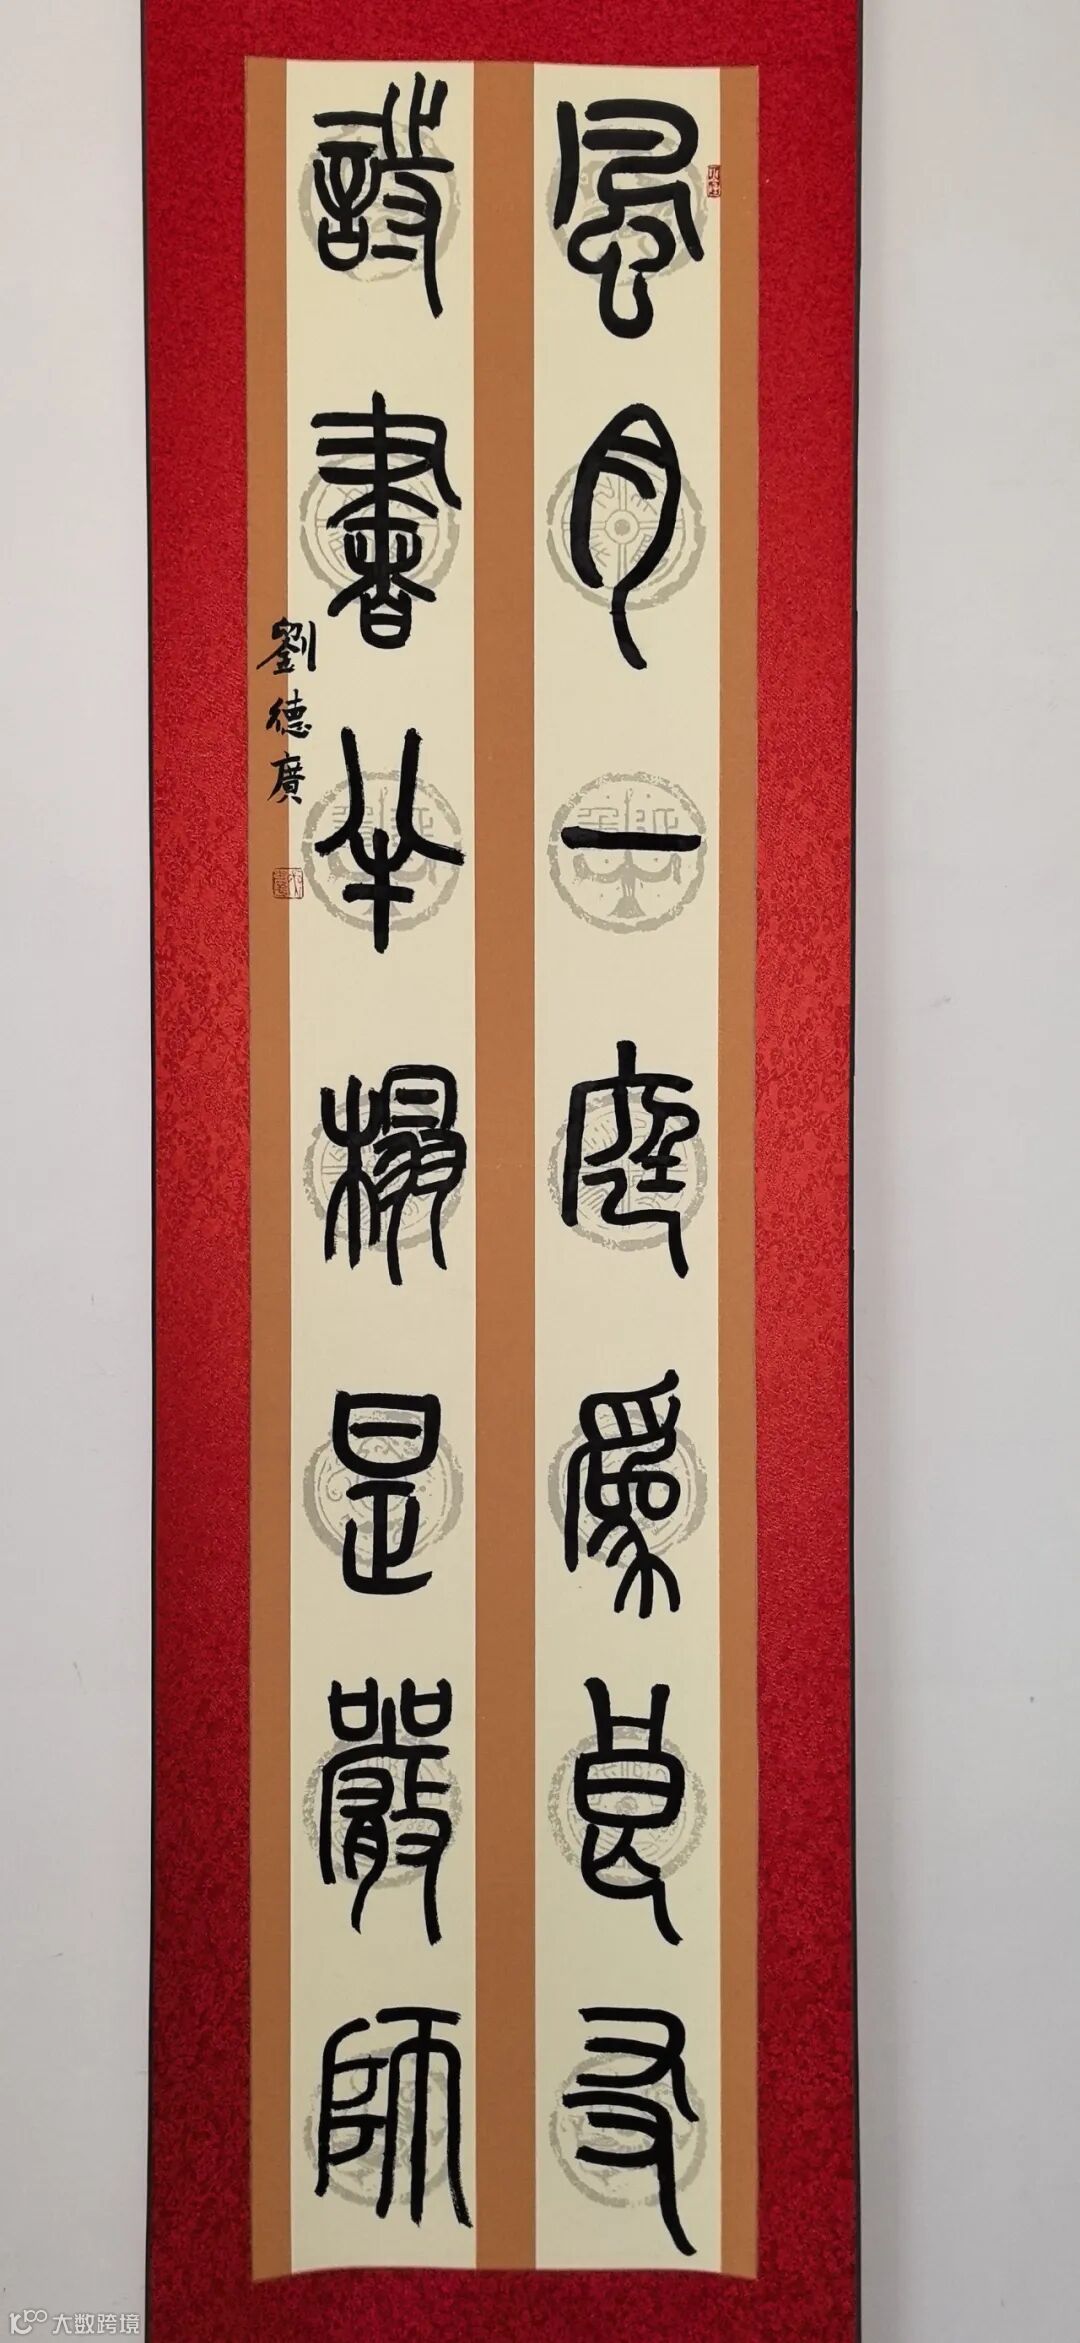 風月一庭爲良友
詩書半榻是嚴師
劉德廣
大数跨境